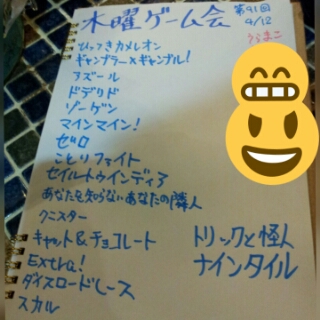 木曜ゲーム会 第91回
9/12
うらまこ
ひっつきカメレオン
ギャンブラー×ギャンブル!
アズール
ドデリド
ゾーゲン
マインマイン!
ゼロ
ことりファイト
セイルトゥインディア
あなたを知らないあなたの隣人
クニスター
キャット&チョコレート
Extra!
ダイスロードレース
スカル
トリックと怪人
ナインタイル